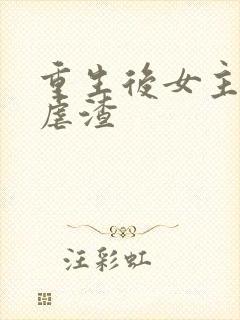 重生後女主
虐渣
汪彩虹